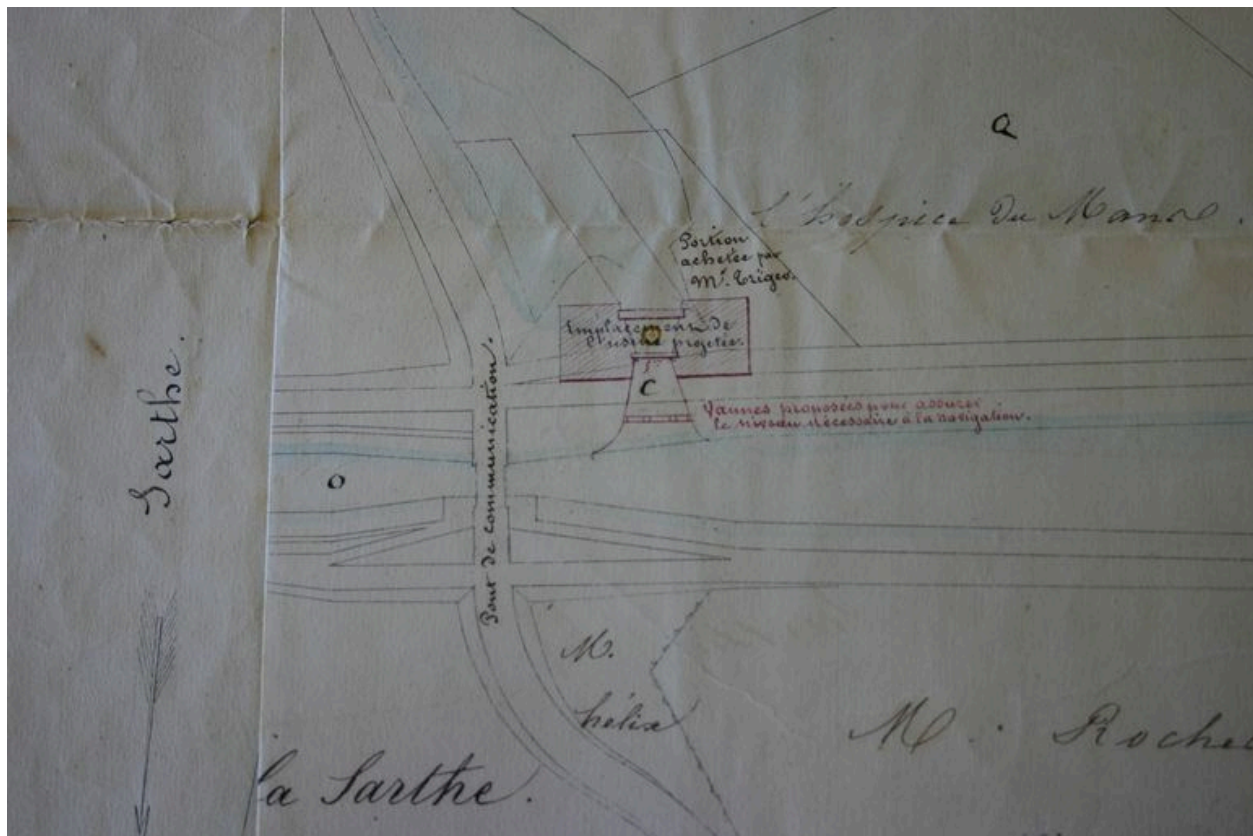 Q
l'hospice du Mans.
Portion
achetée par
Mr. Triger.
Emplacement de
l'usine projetée.
C
Vannes proposées pour assurer
le niveau nécessaire à la navigation.
Pont de communication.
Sarthe.
O
M.
hélix
M. Roche
la Sarthe.